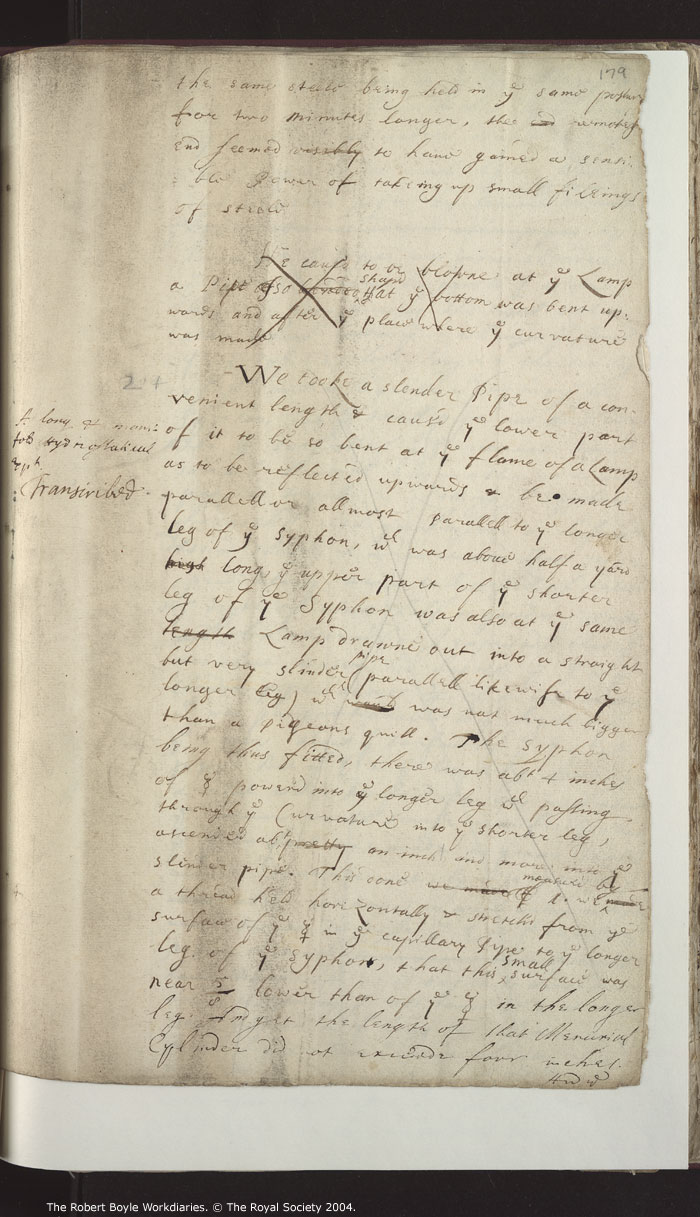 179
the same steele being held in ye same posture
for two minutes longer, the end remotest
End seemed visibly to have gained a sensi-
: ble Power of takeing up small fileings
of steele
We caus'd to be blowne at ye Lamp
a Pipe also shap'd that ye bottom was bent up-
wards and after ye place where ye curvature
was made
24
We tooke a slender Pipe of a con-
venient length & caus'd ye lower part
of it to be so bent at ye flame of a Lamp
as to be reflected upwards & be made
parallell or allmost parallell to ye longer
leg of ye Syphon, wch was above half a yard
long, ye upper part of ye shorter
leg of ye Syphon was also at ye same
length Lamp drawne out into a straight
but very slinder pipe (parallell likewise to ye
longer leg) wch was not much bigger
than a pigeons quill. The Syphon
being thus fitted, there was abt 4 inches
of ☿ powerd into ye longer leg wch passing
through ye Curvature into ye shorter leg,
ascended abt pretty an inch and more into ye
slinder pipe. This done we measur'd by
a thread held horizontally & stretcht from ye
surface of ye ☿ in ye capillary Pipe to ye longer
leg of ye Syphon, that this small surface was
near 5/8 lower than of ye ☿ in the longer
leg. And yet the length of that Mercurial
Cylinder did not exceede four inches.
And wt
A long & nomi:
fold Hydrostatical
: Transcribed.
The Robert Boyle Workdiaries. © The Royal Society 2004.